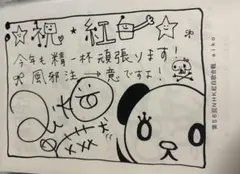 ☆祝★紅白☆
今年も精一杯頑張ります!
※風邪注→意ですよ!
第58回NHK紅白歌合戦 aiko